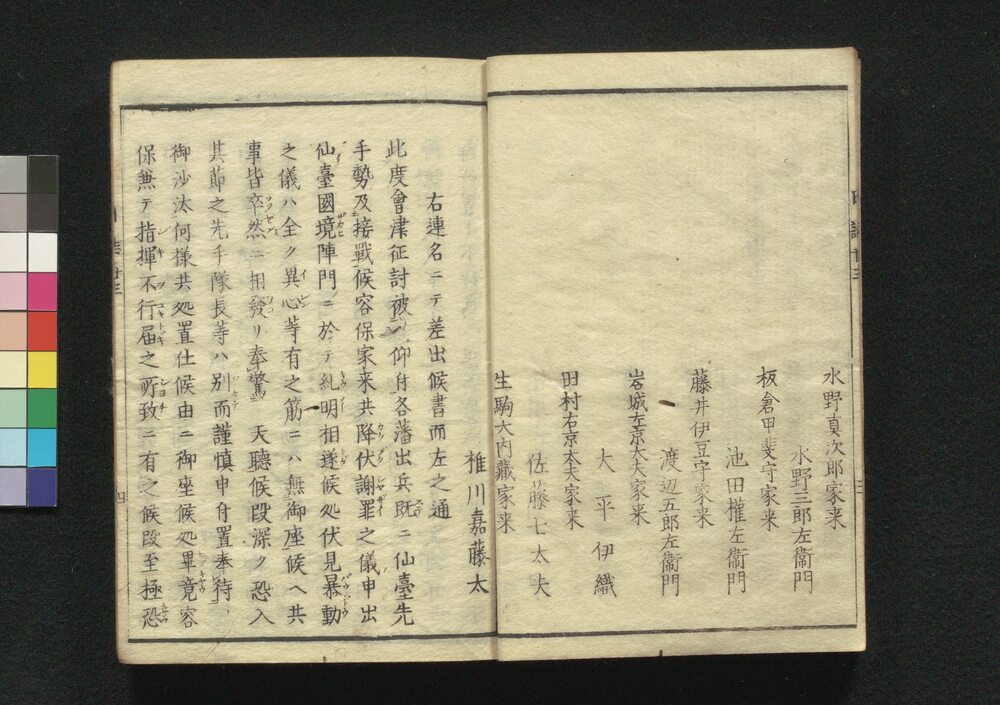 水野真次郎家来
水野三郎左衞門
板倉甲斐守家来
池田權左衞門
藤井伊豆守家来
渡辺五郎左衞門
岩城左京大夫家来
大平伊織
田村右京太夫家来
佐藤七太夫
生駒大内藏家来
椎川嘉藤太
右連名ニテ差出候書面左之通
此度會津征討被仰付各藩出兵既ニ仙臺先
手勢及接戰候容保家来共降伏謝罪之儀申出
仙臺國境陣門ニ於テ糺明相遂候処伏見暴動
之儀ハ全ク異心等有之筋ニハ無御座候ヘ共
事皆卒然ニ相發リ奉驚　天聽候段深ク恐入
其節之先手隊長等ハ別而謹慎申付置奉待
御沙汰何樣共処置仕候由ニ御座候処畢竟容
保無テ指揮不行届之所致ニ有之候段至極恐
四